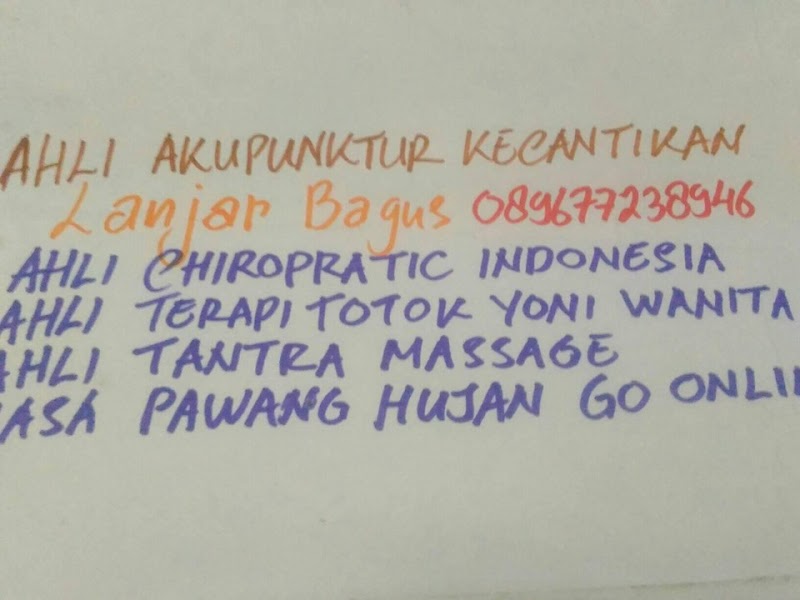 AHLI AKUPUNKTUR KECANTIKAN
Lanjar Bagus 089677238946
AHLI CHIROPRATIC INDONESIA
AHLI TERAPI TOTOK YONI WANITA
AHLI TANTRA MASSAGE
JASA PAWANG HUJAN GO ONLIN